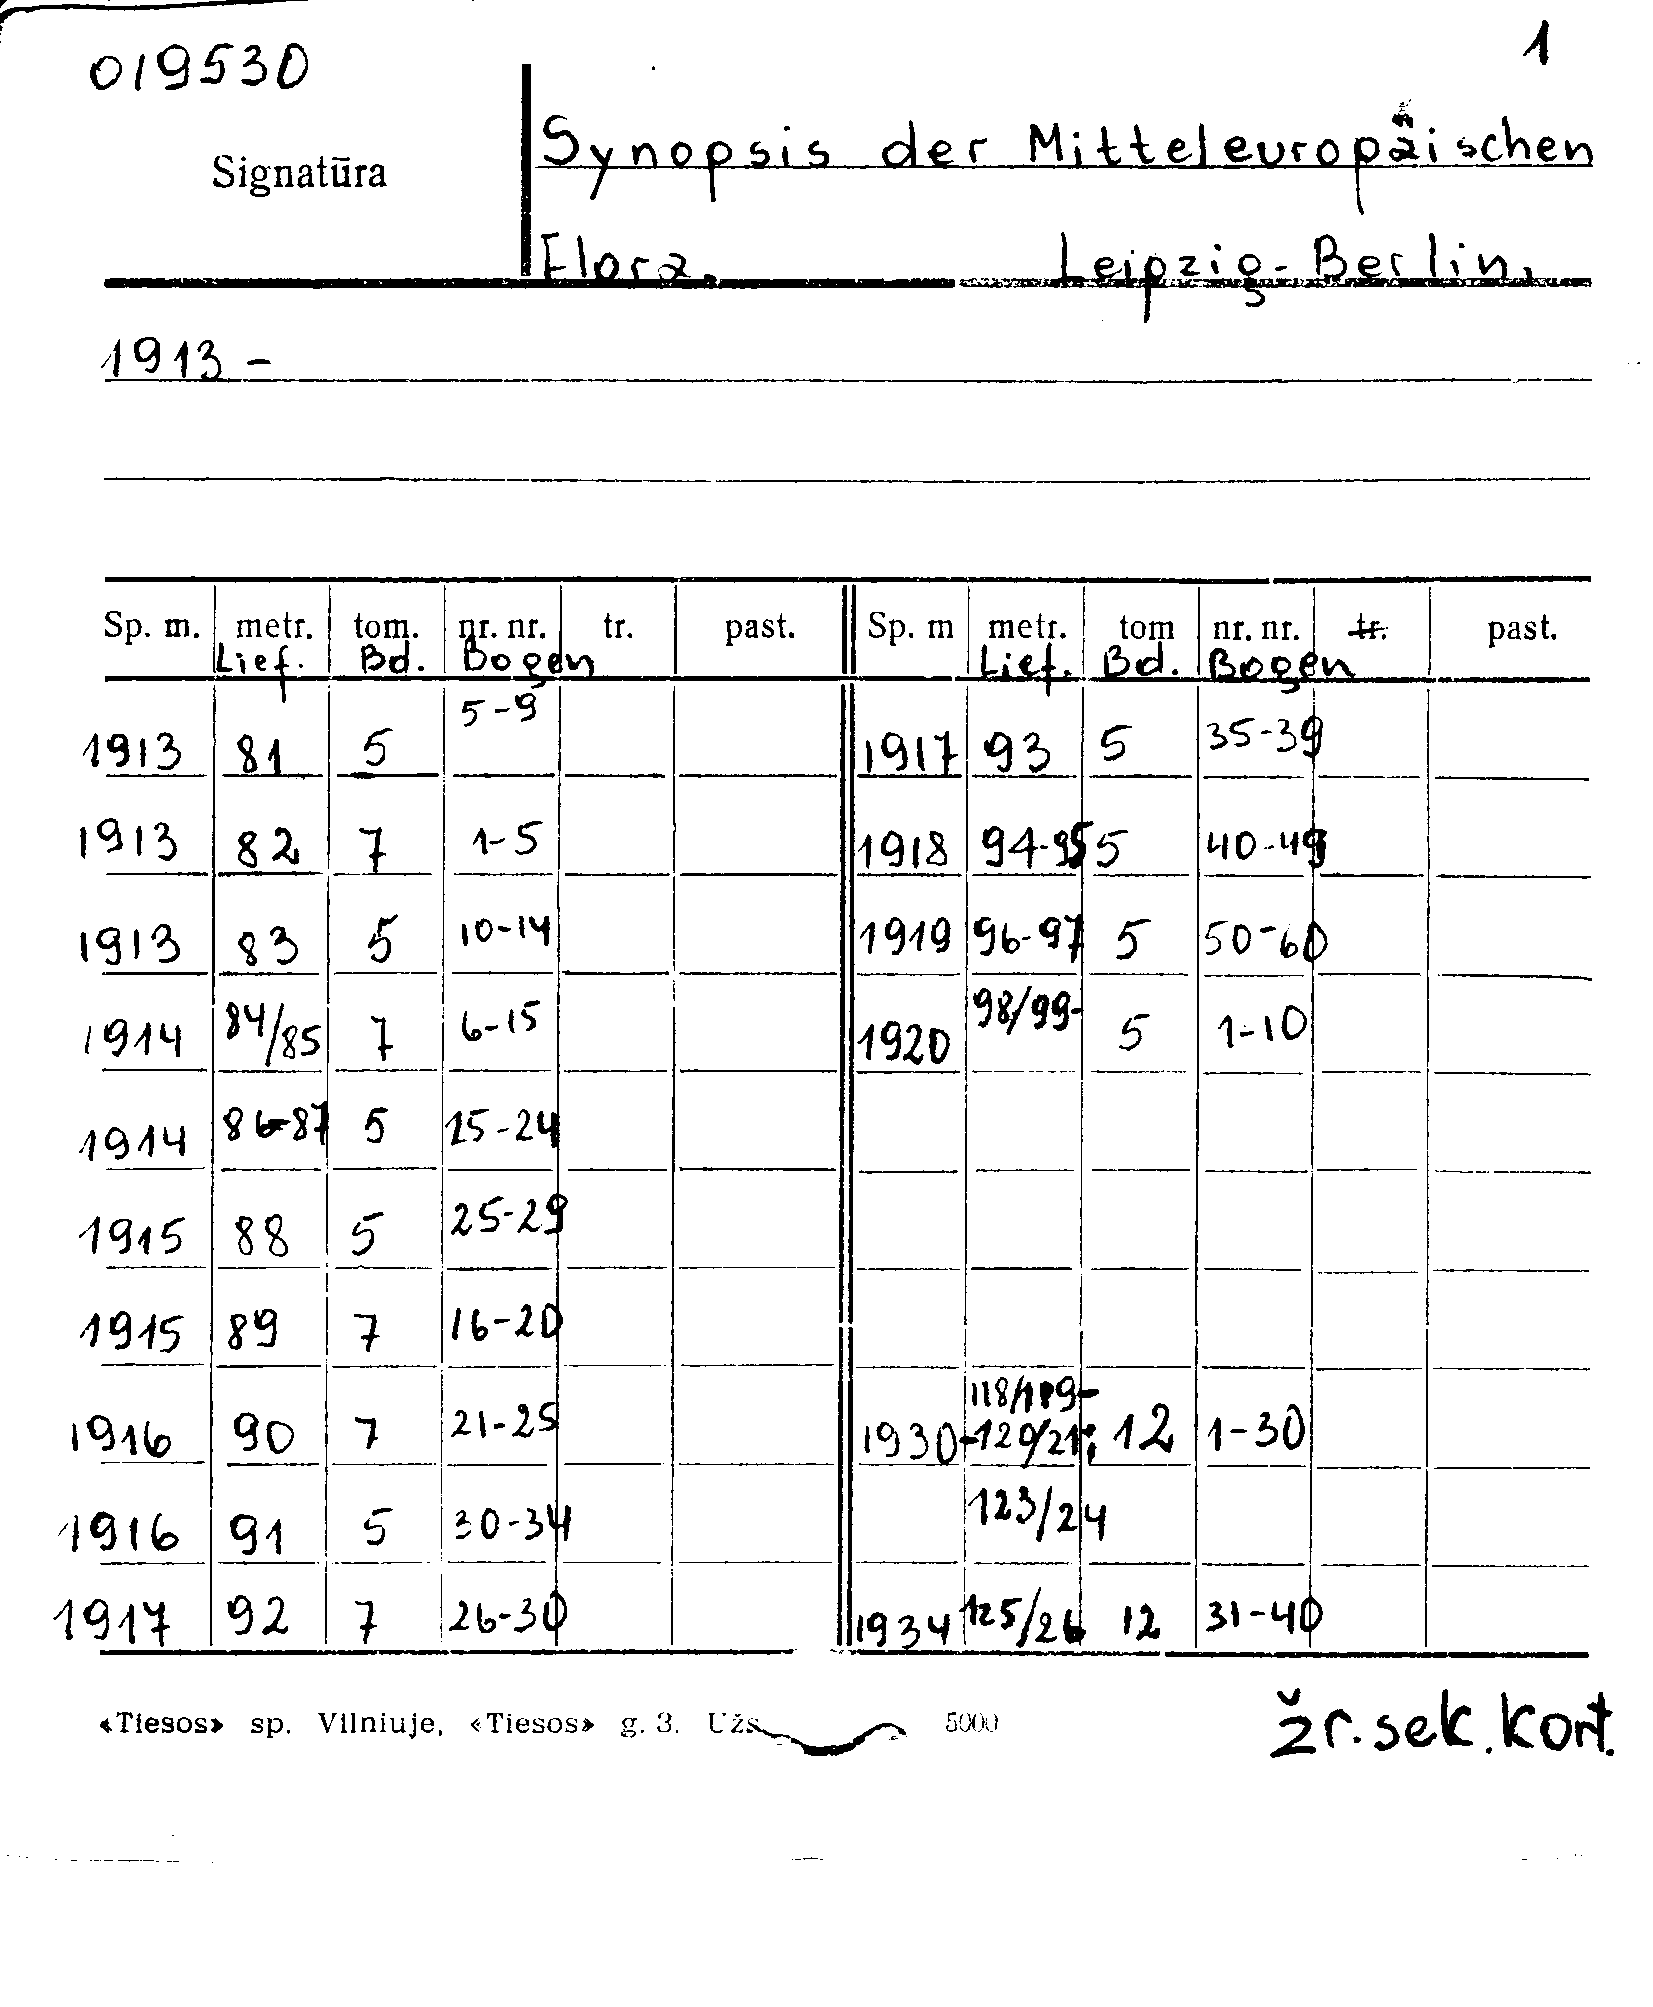 019530
1
Signatūra
Synopsis der Mitteleuropäischen
Flora. Leipzig-Berlin.
1913 -
Sp. m. metr. tom. nr. nr. tr. past. Sp. m metr. tom nr. nr. tr. past.
Lief. Bd. Bogen Lief. Bd. Bogen
1913 81 5 5-9 1917 93 5 35-39
1913 82 7 1-5 1918 94-95 5 40-49
1913 83 5 10-14 1919 96-97 5 50-60
1914 84/85 7 6-15 1920 98/99- 5 1-10
1914 86-87 5 15-24
1915 88 5 25-29
1915 89 7 16-20
118/119-
1916 90 7 21-25 1930-120/21; 12 1-30
1916 91 5 30-34 123/24
1917 92 7 26-30 1934 125/26 12 31-40
«Tiesos» sp. Vilniuje, «Tiesos» g. 3. Užs 5000
žr. sek. kort.